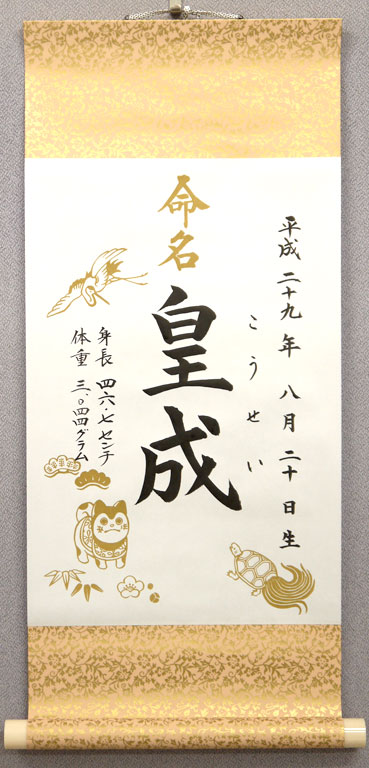 命名
平成二十九年 八月二十日生
こうせい
皇成
身長 四六・七センチ
体重 三、〇四四グラム